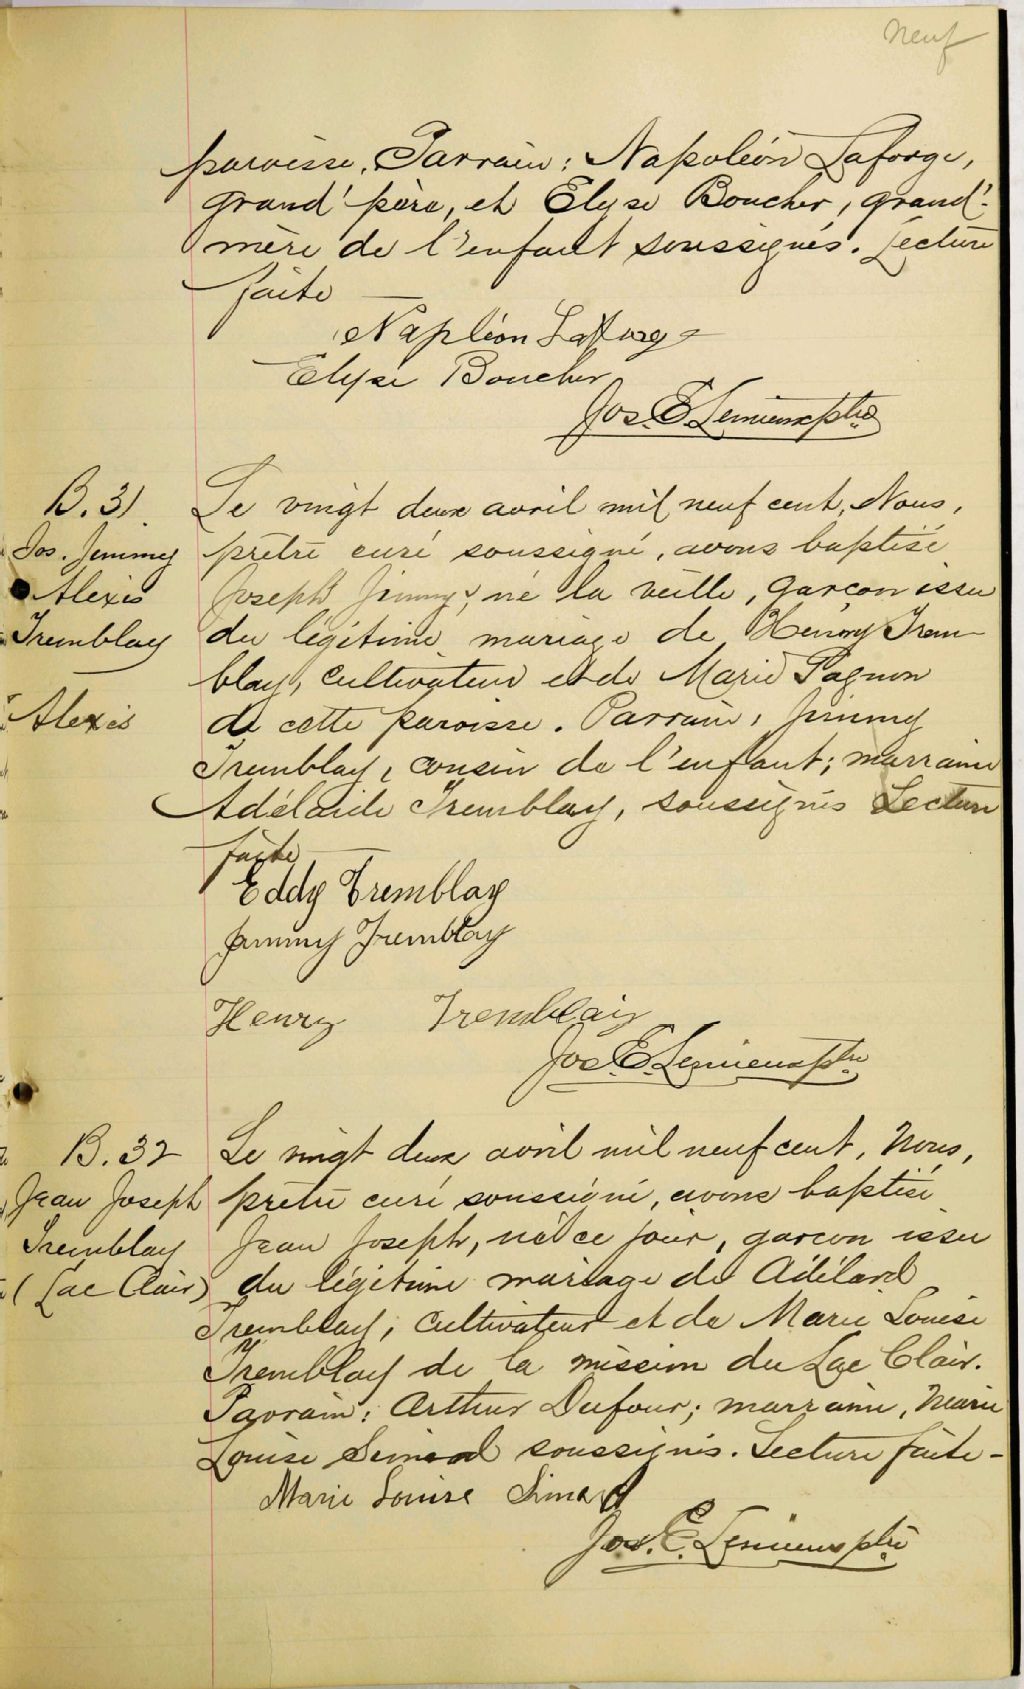 neuf
paroisse. Parrain: Napoléon Laforge,
grand'père, et Elyse Boucher, grand'-
mère de l'enfant soussignés. Lecture
faite
Napléon Laforge
Elyse Boucher
Jos. E. Lemieux ptre
B. 31.
Jos. Jimmy
Alexis
Tremblay
Alexis
Le vingt deux avril mil neuf cent, Nous,
prêtre curé soussigné, avons baptisé
Joseph Jimmy, né la veille, garçon issu
du légitime mariage de Henry Trem-
blay, cultivateur et de Marie Pagnon
de cette paroisse. Parrain, Jimmy
Tremblay, cousin de l'enfant; marraine
Adélaide Tremblay, soussignés Lecture
faite
Eddy Tremblay
Jimmy Tremblay
Henry Tremblay
Jos. E. Lemieux ptre
B. 32
Jean Joseph
Tremblay
(Lac Clair)
Le vingt deux avril mil neuf cent, Nous,
prêtre curé soussigné, avons baptisé
Jean Joseph, né ce jour, garçon issu
du légitime mariage de Adélard
Tremblay, cultivateur et de Marie Louise
Tremblay de la mission du Lac Clair.
Parrain: Arthur Dufour; marraine, Marie
Louise Simard soussignés. Lecture faite -
Marie Louise Simard
Jos. E. Lemieux ptre